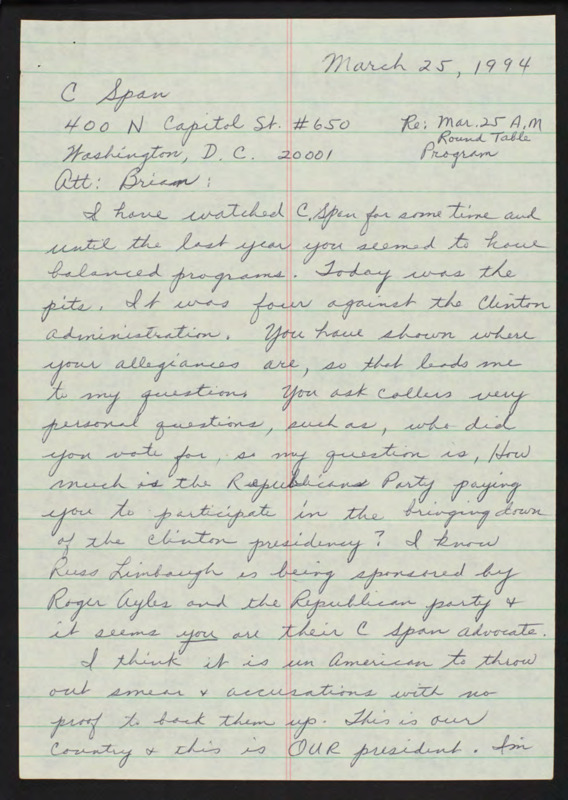 March 25, 1994
C Span
400 N Capitol St. #650 Re: Mar. 25 A.M
Round Table
Washington, D. C. 20001 Program
Att: Brian:
I have watched C.Span for some time and
until the last year you seemed to have
balanced programs. Today was the
pits. It was four against the Clinton
administration. You have shown where
your allegiances are, so that leads me
to my question. You ask callers very
personal questions, such as, who did
you vote for, so my question is, How
much is the Republicans Party paying
you to participate in the bringing down
of the Clinton presidency? I know
Russ Limbaugh is being sponsored by
Roger Ayles and the Republican party &
it seems you are their C Span advocate.
I think it is un American to throw
out smear & accusations with no
proof to back them up. This is our
Country & this is OUR president. I'm